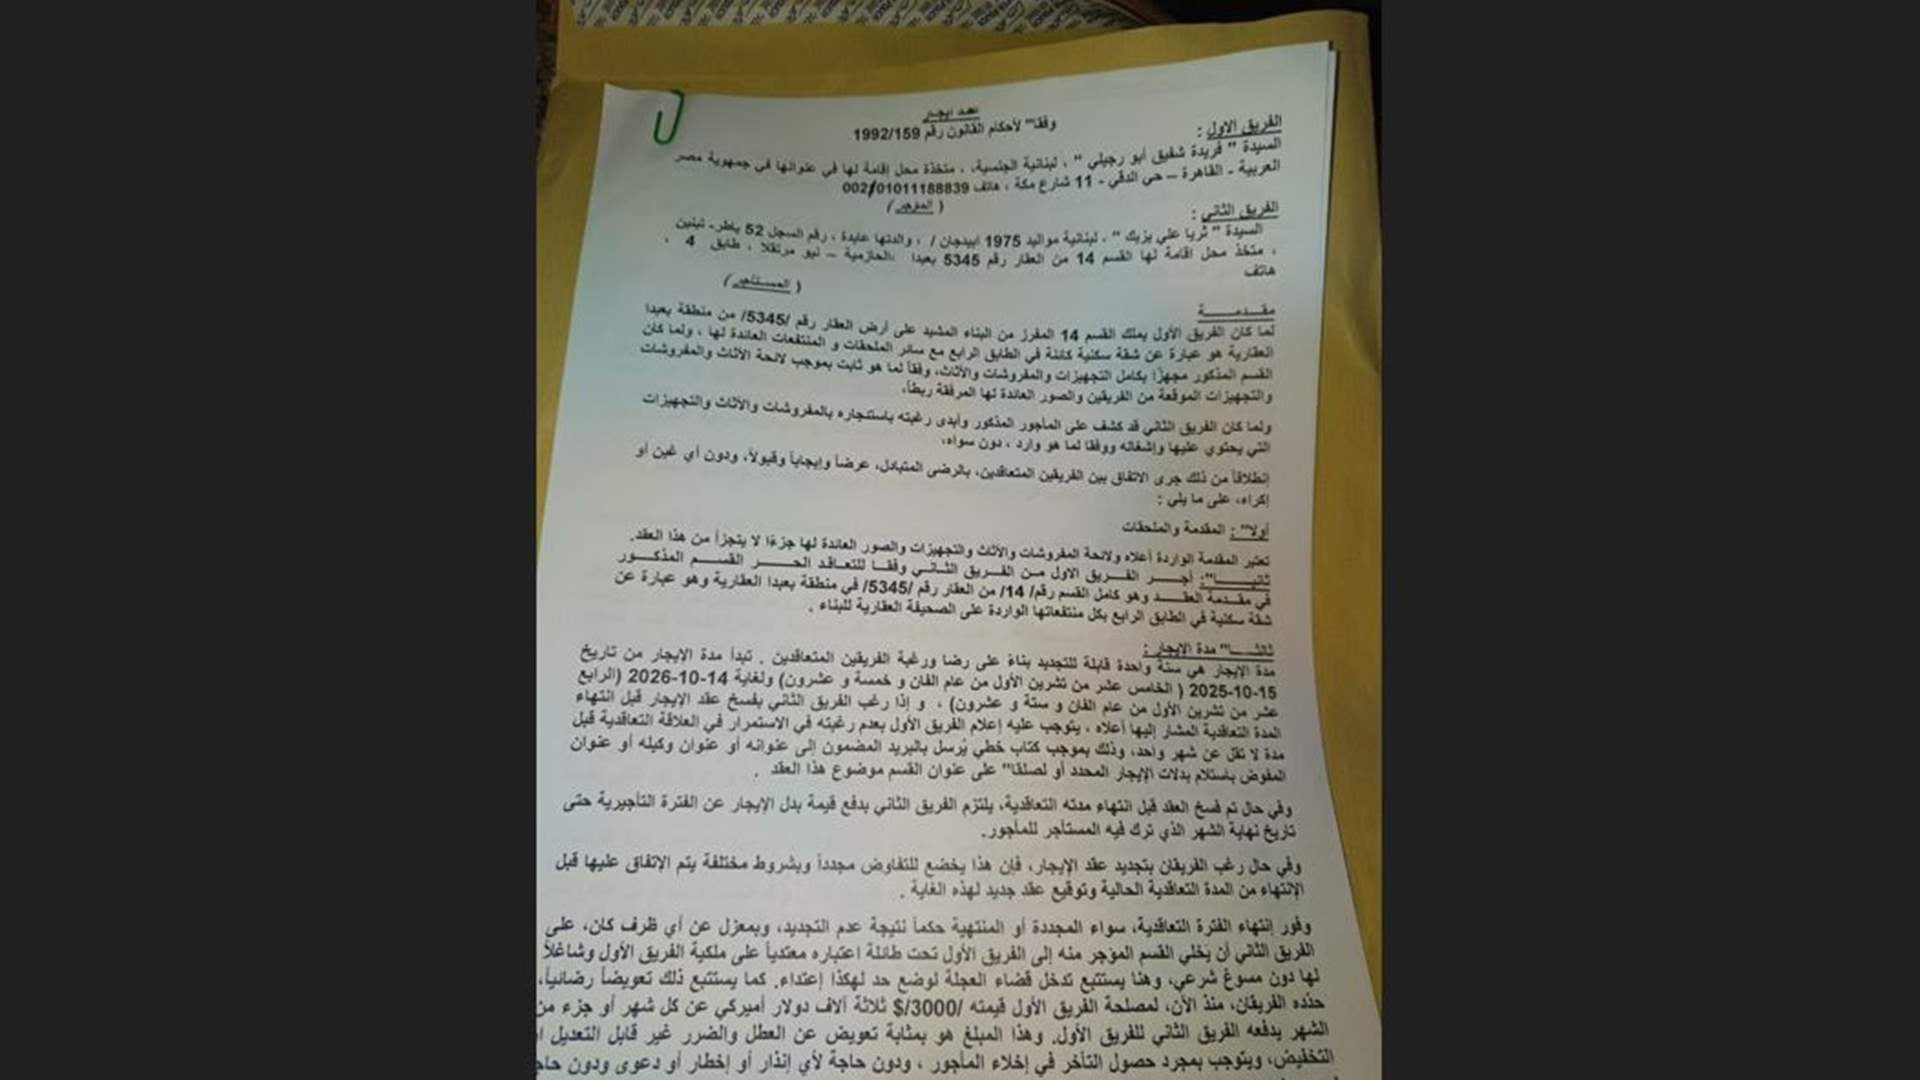 عقد ايجار
وفقا" لأحكام القانون رقم 1992/159
الفريق الاول :
السيدة " فريدة شفيق أبو رجيلي " ، لبنانية الجنسية، ، متخذة محل إقامة لها في عنوانها في جمهوية مصر
العربية - القاهرة – حي الدقي - 11 شارع مكة ، هاتف 002/01011188839
( المؤجر )
الفريق الثاني :
السيدة " ثريا علي يزبك " ، لبنانية مواليد 1975 ابيدجان / ، والدتها عايدة ، رقم السجل 52 ياطر- تبنين
، متخذ محل اقامة لها القسم 14 من العقار رقم 5345 بعبدا الحازمية – نيو مرتقلا ، طابق 4 ،
هاتف
( المستأجر )
مقدمـــــة
لما كان الفريق الأول يملك القسم 14 المفرز من البناء المشيد على أرض العقار رقم /5345/ من منطقة بعبدا
العقارية هو عبارة عن شقة سكنية كائنة في الطابق الرابع مع سائر الملحقات و المنتفعات العائدة لها ، ولما كان
القسم المذكور مجهزًا بكامل التجهيزات والمفروشات والأثاث، وفقاً لما هو ثابت بموجب لائحة الأثاث والمفروشات
والتجهيزات الموقعة من الفريقين والصور العائدة لها المرفقة ربطاً،
ولما كان الفريق الثاني قد كشف على المأجور المذكور وأبدى رغبته باستئجاره بالمفروشات والأثاث والتجهيزات
التي يحتوي عليها وإشغاله ووفقا لما هو وارد ، دون سواه،
إنطلاقاً من ذلك جرى الاتفاق بين الفريقين المتعاقدين، بالرضى المتبادل، عرضاً وإيجاباً وقبولاً، ودون أي غبن أو
إكراه، على ما يلي :
أولا" : المقدمة والملحقات
تعتبر المقدمة الواردة أعلاه ولائحة المفروشات والأثاث والتجهيزات والصور العائدة لها جزءًا لا يتجزأ من هذا العقد.
ثانيـــا": أجـــر الفـــريق الاول مـن الفـــريق الثـــاني وفقـــا للتعـاقـد الحـــر القســـم المذكـــور
في مقـدمة العقـــد وهو كامل القسم رقم/ 14/ من العقار رقم /5345/ في منطقة بعبدا العقارية وهو عبارة عن
شقة سكنية في الطابق الرابع بكل منتفعاتها الواردة على الصحيفة العقارية للبناء .
ثالثـــا" مدة الإيجار :
مدة الإيجار هي سنة واحدة قابلة للتجديد بناءً على رضا ورغبة الفريقين المتعاقدين . تبدأ مدة الايجار من تاريخ
15-10-2025 ( الخامس عشر من تشرين الأول من عام الفان و خمسة و عشرون) ولغاية 14-10-2026 (الرابع
عشر من تشرين الأول من عام الفان و ستة و عشرون) ، و إذا رغب الفريق الثاني بفسخ عقد الإيجار قبل انتهاء
المدة التعاقدية المشار إليها أعلاه ، يتوجب عليه إعلام الفريق الأول بعدم رغبته في الاستمرار في العلاقة التعاقدية قبل
مدة لا تقل عن شهر واحد، وذلك بموجب كتاب خطي يُرسل بالبريد المضمون إلى عنوانه أو عنوان وكيله أو عنوان
المفوض باستلام بدلات الإيجار المحدد أو لصلقا" على عنوان القسم موضوع هذا العقد .
وفي حال تم فسخ العقد قبل انتهاء مدته التعاقدية، يلتزم الفريق الثاني بدفع قيمة بدل الإيجار عن الفترة التأجيرية حتى
تاريخ نهاية الشهر الذي ترك فيه المستأجر للمأجور.
وفي حال رغب الفريقان بتجديد عقد الإيجار، فإن هذا يخضع للتفاوض مجدداً وبشروط مختلفة يتم الإتفاق عليها قبل
الإنتهاء من المدة التعاقدية الحالية وتوقيع عقد جديد لهذه الغاية .
وفور إنتهاء الفترة التعاقدية، سواء المجددة أو المنتهية حكماً نتيجة عدم التجديد، وبمعزل عن أي ظرف كان، على
الفريق الثاني أن يَخلي القسم المؤجر منه إلى الفريق الأول تحت طائلة اعتباره معتدياً على ملكية الفريق الأول وشاغلاً
لها دون مسوغ شرعي، وهنا يستتبع تدخل قضاء العجلة لوضع حد لهكذا إعتداء. كما يستتبع ذلك تعويضاً رضائياً،
حدده الفريقان، منذ الآن، لمصلحة الفريق الأول قيمته /3000/$ ثلاثة آلاف دولار أميركي عن كل شهر أو جزء من
الشهر يدفعه الفريق الثاني للفريق الأول. وهذا المبلغ هو بمثابة تعويض عن العطل والضرر غير قابل التعديل
التخفيض، ويتوجب بمجرد حصول التأخر في إخلاء المأجور ، ودون حاجة لأي إنذار أو إخطار أو دعوى ودون